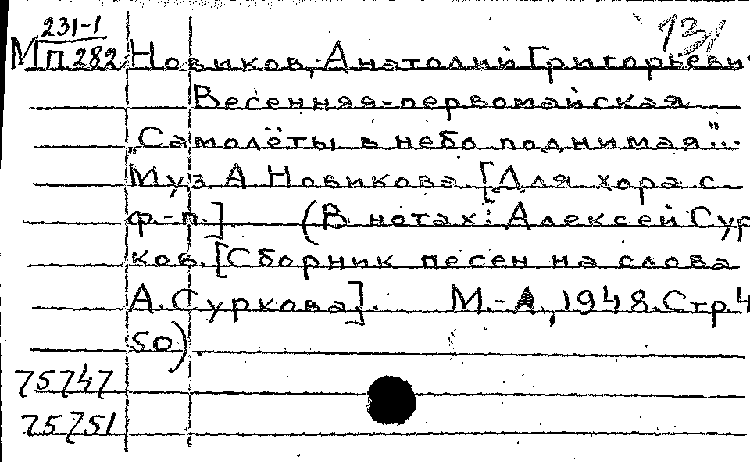 231-1
М П 282 Новиков, Анатолий Григорьеви
131
Весенняя-первомайская
„Самолёты в небо поднимая"...
Муз А Новикова. [Для хора с
ф.-п.] (В нотах: Алексей Сур
ков. [Сборник песен на слова
А. Суркова]. М.-Л, 1948. Стр 4
50).
75747
75751